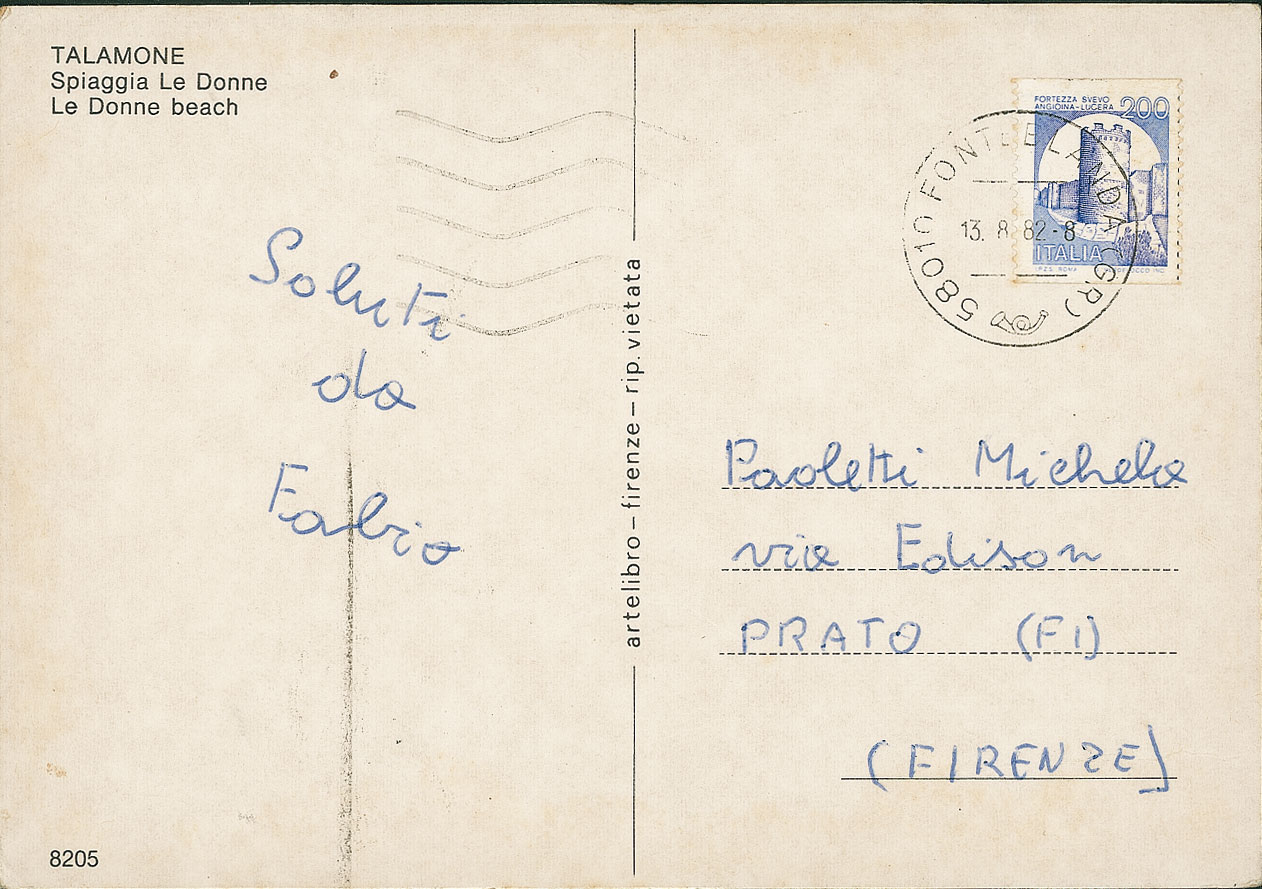 TALAMONE
Spiaggia Le Donne
Le Donne beach
Saluti
da
Fabio
8205
artelibro – firenze – rip. vietata
FORTEZZA SVEVO
ANGIOINA-LUCERA 200
ITALIA
I.P.Z.S. ROMA
58010 FONTEBLANDA (GR)
13. 8. 82-8
Paoletti Michele
via Edison
PRATO (FI)
(FIRENZE)